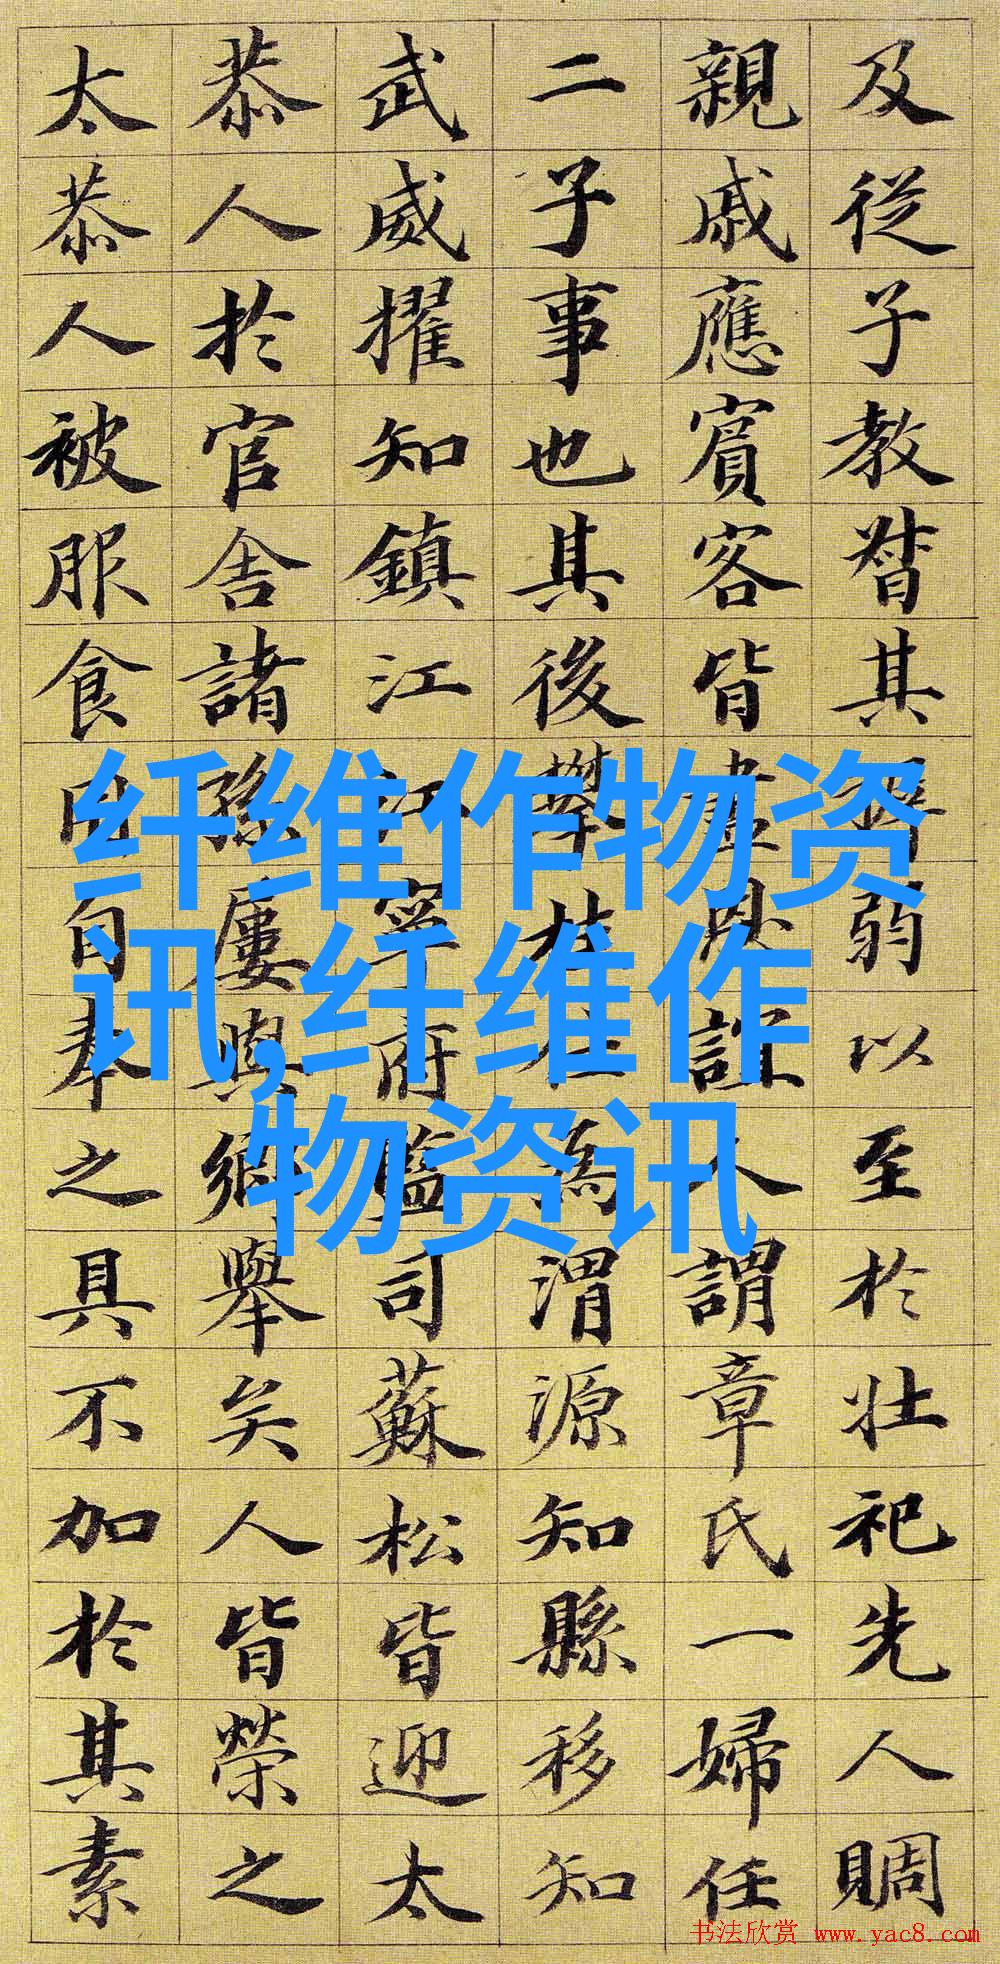 及從子教督其弱以至於壯祀先人賙
親戚應賓客皆盡誼人謂章氏一婦任
二子事也其後攀桂為渭源知縣移知
武威擢知鎮江江寧府監司蘇松皆迎太
恭人於官舍諸孫屢與鄉舉矣人皆榮之
太恭人被服食用自奉之具不加於其素
纤维作物资
讯,纤维作
物资讯
书法欣赏 www.yac8.com